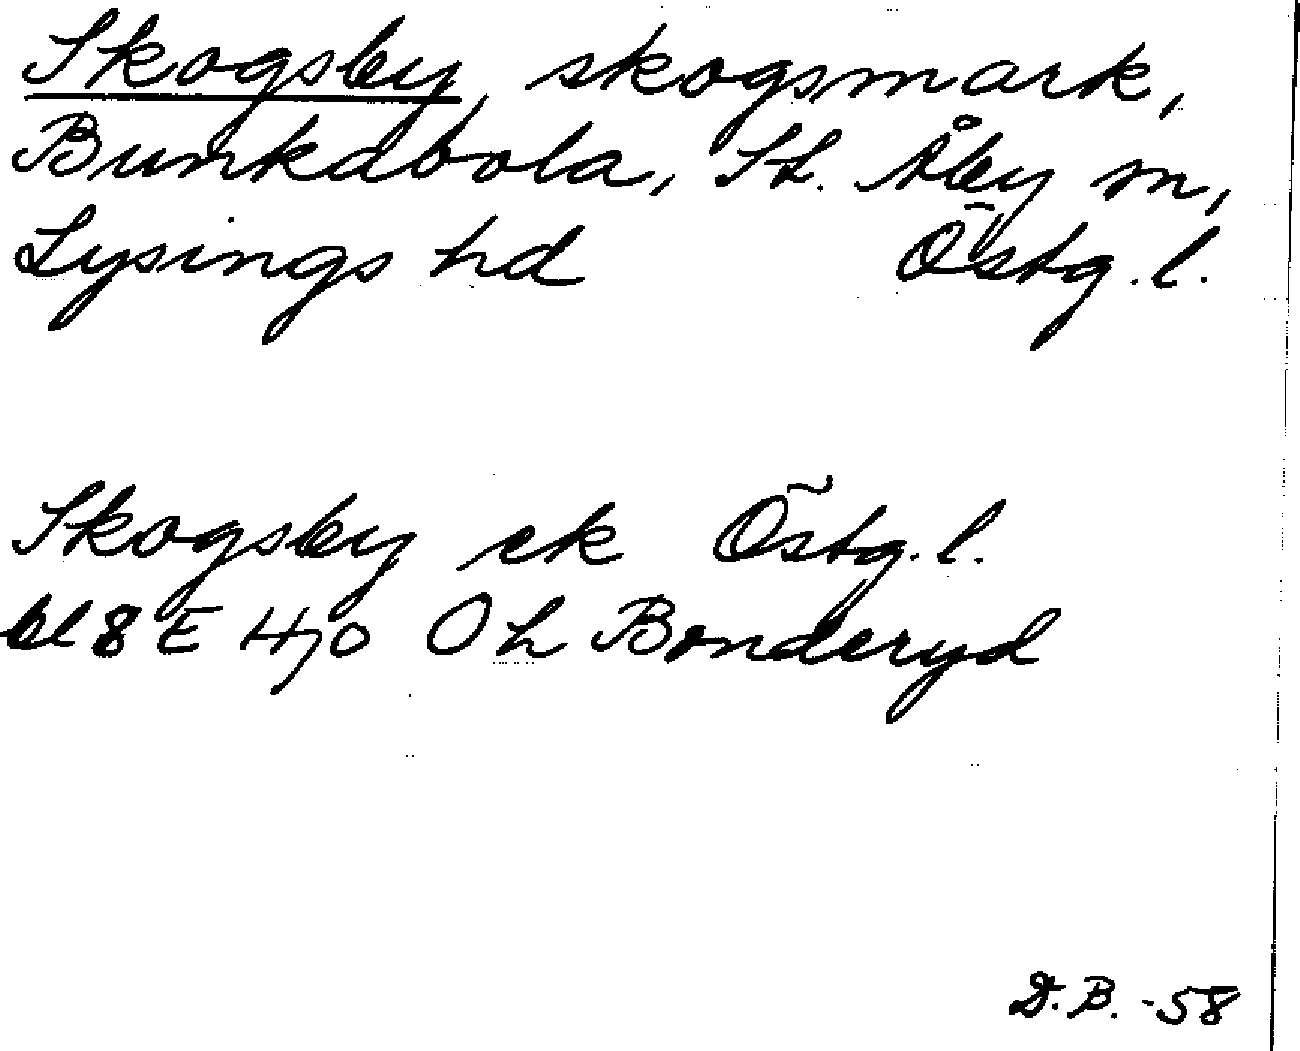 Skogsby, skogsmark,
Bunkabola, St. Åby m,
Lysings hd Östg. l.
Skogsby ek Östg. l.
bl 8 E Hjo Ö L Bonderyd
D.B. -58